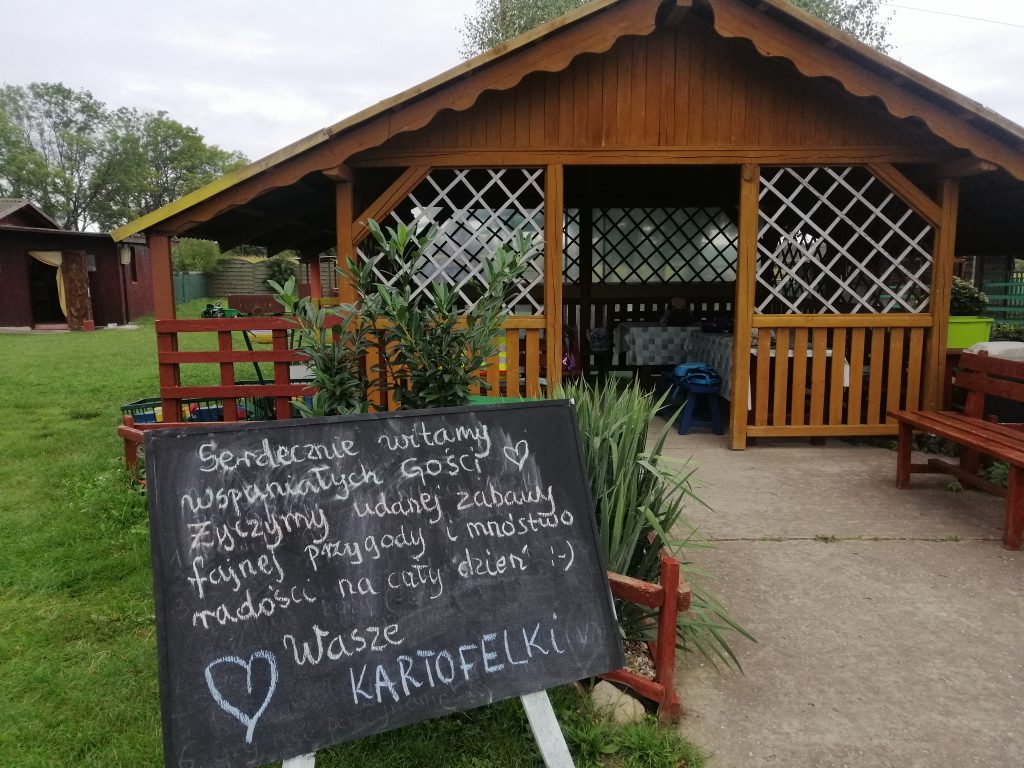 Serdecznie witamy
wspaniałych Gości
Życzymy udanej zabawy
fajnej przygody i mnóstwo
radości na cały dzień :-)
Wasze
KARTOFELKI